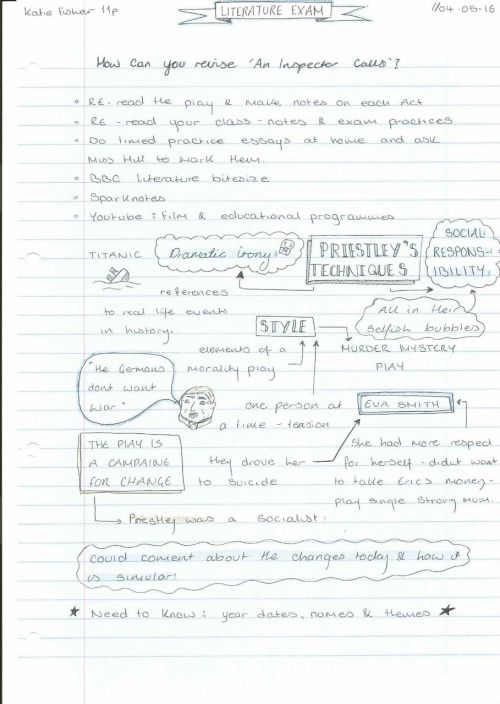 Katie Fisher 11p
LITERATURE EXAM
//04-05-16
How can you revise 'An Inspector Calls'?
RE-read the play & make notes on each Act
RE-read your class-notes & exam practices
Do timed practice essays at home and ask
Miss Hill to mark them.
BBC Literature bitesize
Sparknotes
Youtube: film & educational programmes
TITANIC
Dramatic irony!
PRIESTLEY'S
TECHNIQUES
SOCIAL
RESPONS-
IBILITY!
references
to real life events
in history.
All in their
selfish bubbles
STYLE
elements of a
morality play
MURDER MYSTERY
PLAY
"The Germans
dont want
war"
one person at
a time - tension
EVA SMITH
THE PLAY IS
A CAMPAINE
FOR CHANGE
they drove her
to suicide
She had more respect
for herself - didnt want
to take Erics money-
play single strong mum.
Priestley was a socialist!
could coment about the changes today & how it
is simular!
★ Need to know: year dates, names & themes ★